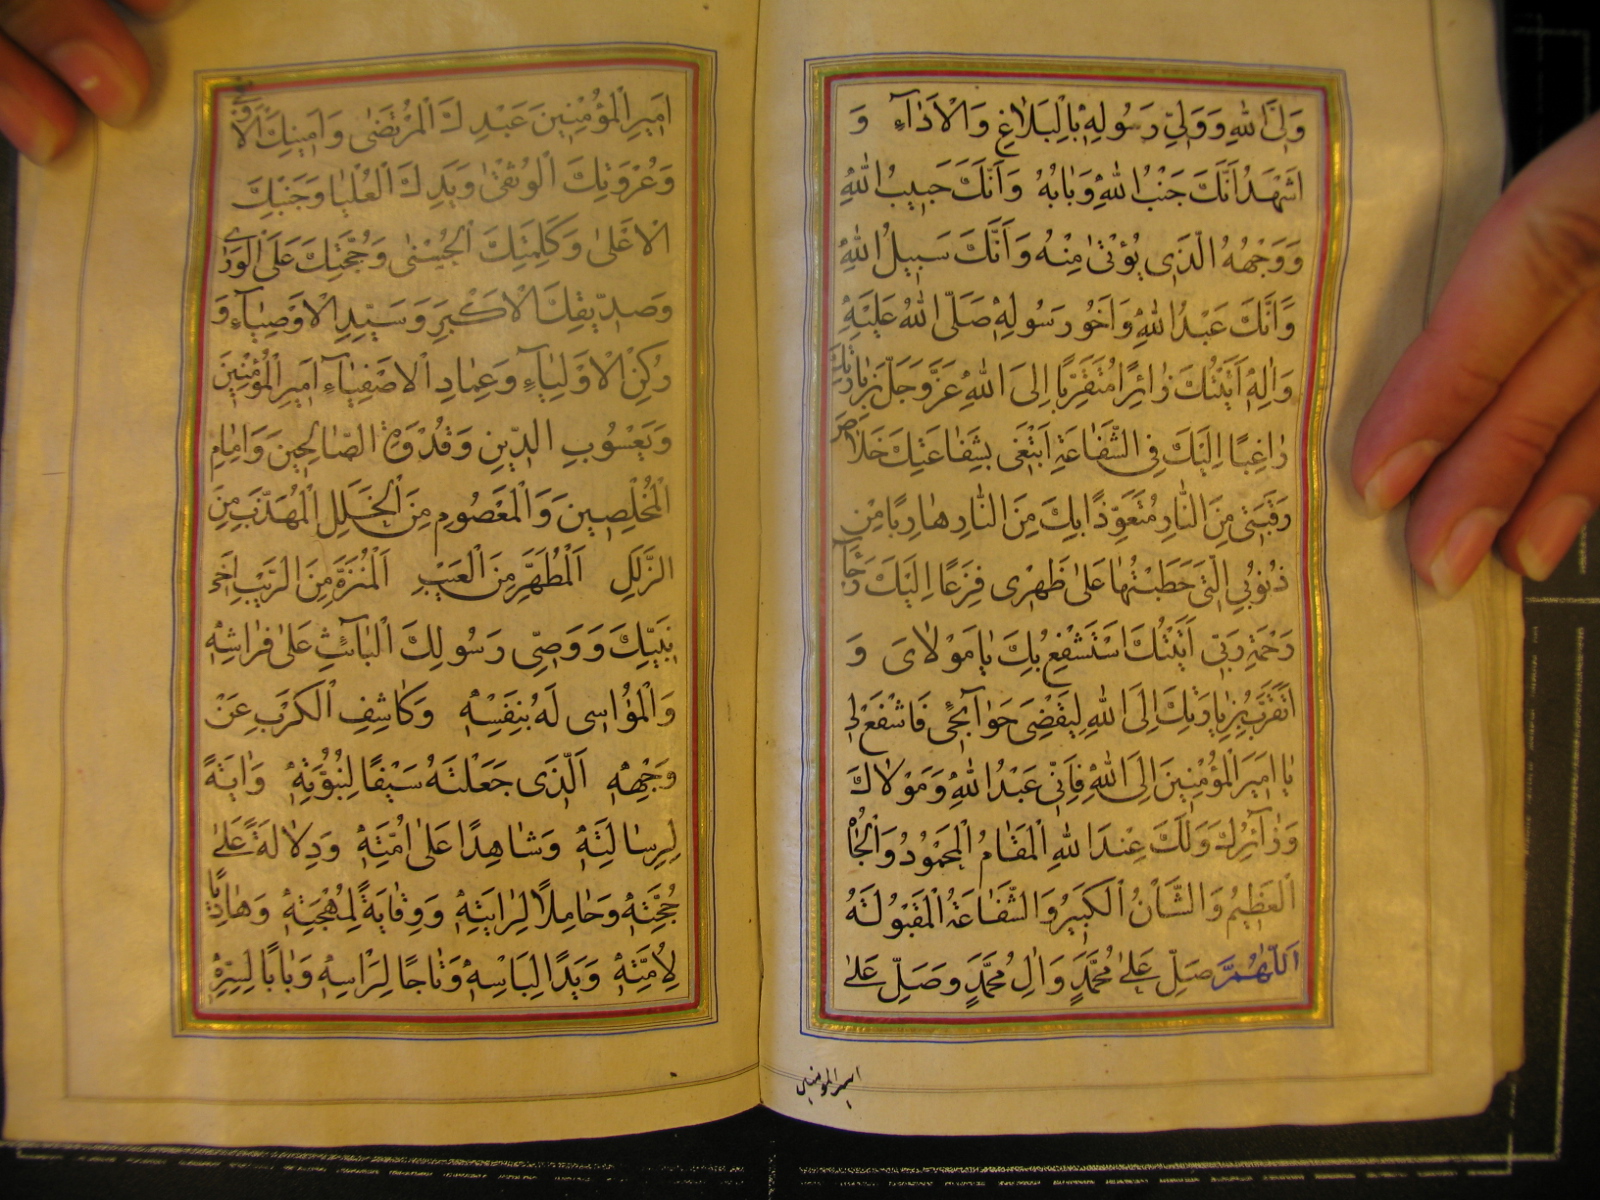 وَلِىَّ اللهِ وَوَلِىِّ رَسُولِهٖ بِالْبَلَاغِ وَالْاَدَآءِ وَ
اَشْهَدُ اَنَّكَ جَنْبُ اللهِ وَبَابُهُ وَاَنَّكَ حَبِيبُ اللهِ
وَوَجْهُهُ الَّذِى يُؤْتٰى مِنْهُ وَاَنَّكَ سَبِيلُ اللهِ
وَاَنَّكَ عَبْدُ اللهِ وَاَخُو رَسُولِهٖ صَلَّى اللهُ عَلَيْهِ
وَاٰلِهٖ اَتَيْتُكَ زَائِرًا مُتَقَرِّبًا اِلَى اللهِ عَزَّ وَجَلَّ بِزِيَارَتِكَ
رَاغِبًا اِلَيْكَ فِى الشَّفَاعَةِ اَبْتَغِى بِشَفَاعَتِكَ خَلَاصَ
رَقَبَتِى مِنَ النَّارِ مُتَعَوِّذًا بِكَ مِنَ النَّارِ هَارِبًا مِنْ
ذُنُوبِىَ الَّتِى حَطَبْتُهَا عَلٰى ظَهْرِى فَزِعًا اِلَيْكَ رَجَآءَ
رَحْمَةِ رَبِّى اَتَيْتُكَ اَسْتَشْفِعُ بِكَ يَا مَوْلَاىَ وَ
اَتَقَرَّبُ بِزِيَارَتِكَ اِلَى اللهِ لِيَقْضِىَ حَوَآئِجِى فَاشْفَعْ لِى
يَا اَمِيرَ الْمُؤْمِنِينَ اِلَى اللهِ فَاِنِّى عَبْدُ اللهِ وَمَوْلَاكَ
وَزَآئِرُكَ وَلَكَ عِنْدَ اللهِ الْمَقَامُ الْمَحْمُودُ وَالْجَاهُ
الْعَظِيمُ وَالشَّأْنُ الْكَبِيرُ وَالشَّفَاعَةُ الْمَقْبُولَةُ
اَللّٰهُمَّ صَلِّ عَلٰى مُحَمَّدٍ وَاٰلِ مُحَمَّدٍ وَصَلِّ عَلٰى
امیر المومنین
اَمِيرِ الْمُؤْمِنِينَ عَبْدِكَ الْمُرْتَضٰى وَاَمِينِكَ الْاَوْفٰى
وَعُرْوَتِكَ الْوُثْقٰى وَيَدِكَ الْعُلْيَا وَجَنْبِكَ
الْاَعْلٰى وَكَلِمَتِكَ الْحُسْنٰى وَحُجَّتِكَ عَلَى الْوَرٰى
وَصِدِّيقِكَ الْاَكْبَرِ وَسَيِّدِ الْاَوْصِيَآءِ وَ
رُكْنِ الْاَوْلِيَآءِ وَعِمَادِ الْاَصْفِيَآءِ اَمِيرِ الْمُؤْمِنِينَ
وَيَعْسُوبِ الدِّينِ وَقُدْوَةِ الصَّالِحِينَ وَاِمَامِ
الْمُخْلِصِينَ وَالْمَعْصُومِ مِنَ الْخَلَلِ الْمُهَذَّبِ مِنَ
الزَّلَلِ اَلْمُطَهَّرِ مِنَ الْعَيْبِ اَلْمُنَزَّهِ مِنَ الرَّيْبِ اَخِى
نَبِيِّكَ وَوَصِىِّ رَسُولِكَ الْبَائِتِ عَلٰى فِرَاشِهٖ
وَالْمُوَاسِى لَهُ بِنَفْسِهٖ وَكَاشِفِ الْكَرْبِ عَنْ
وَجْهِهٖ اَلَّذِى جَعَلْتَهُ سَيْفًا لِنُبُوَّتِهٖ وَاٰيَةً
لِرِسَالَتِهٖ وَشَاهِدًا عَلٰى اُمَّتِهٖ وَدِلَالَةً عَلٰى
حُجَّتِهٖ وَحَامِلًا لِرَايَتِهٖ وَوِقَايَةً لِمُهْجَتِهٖ وَهَادِيًا
لِاُمَّتِهٖ وَيَدًا لِبَاسِهٖ وَتَاجًا لِرَاسِهٖ وَبَابًا لِسِرِّهٖ